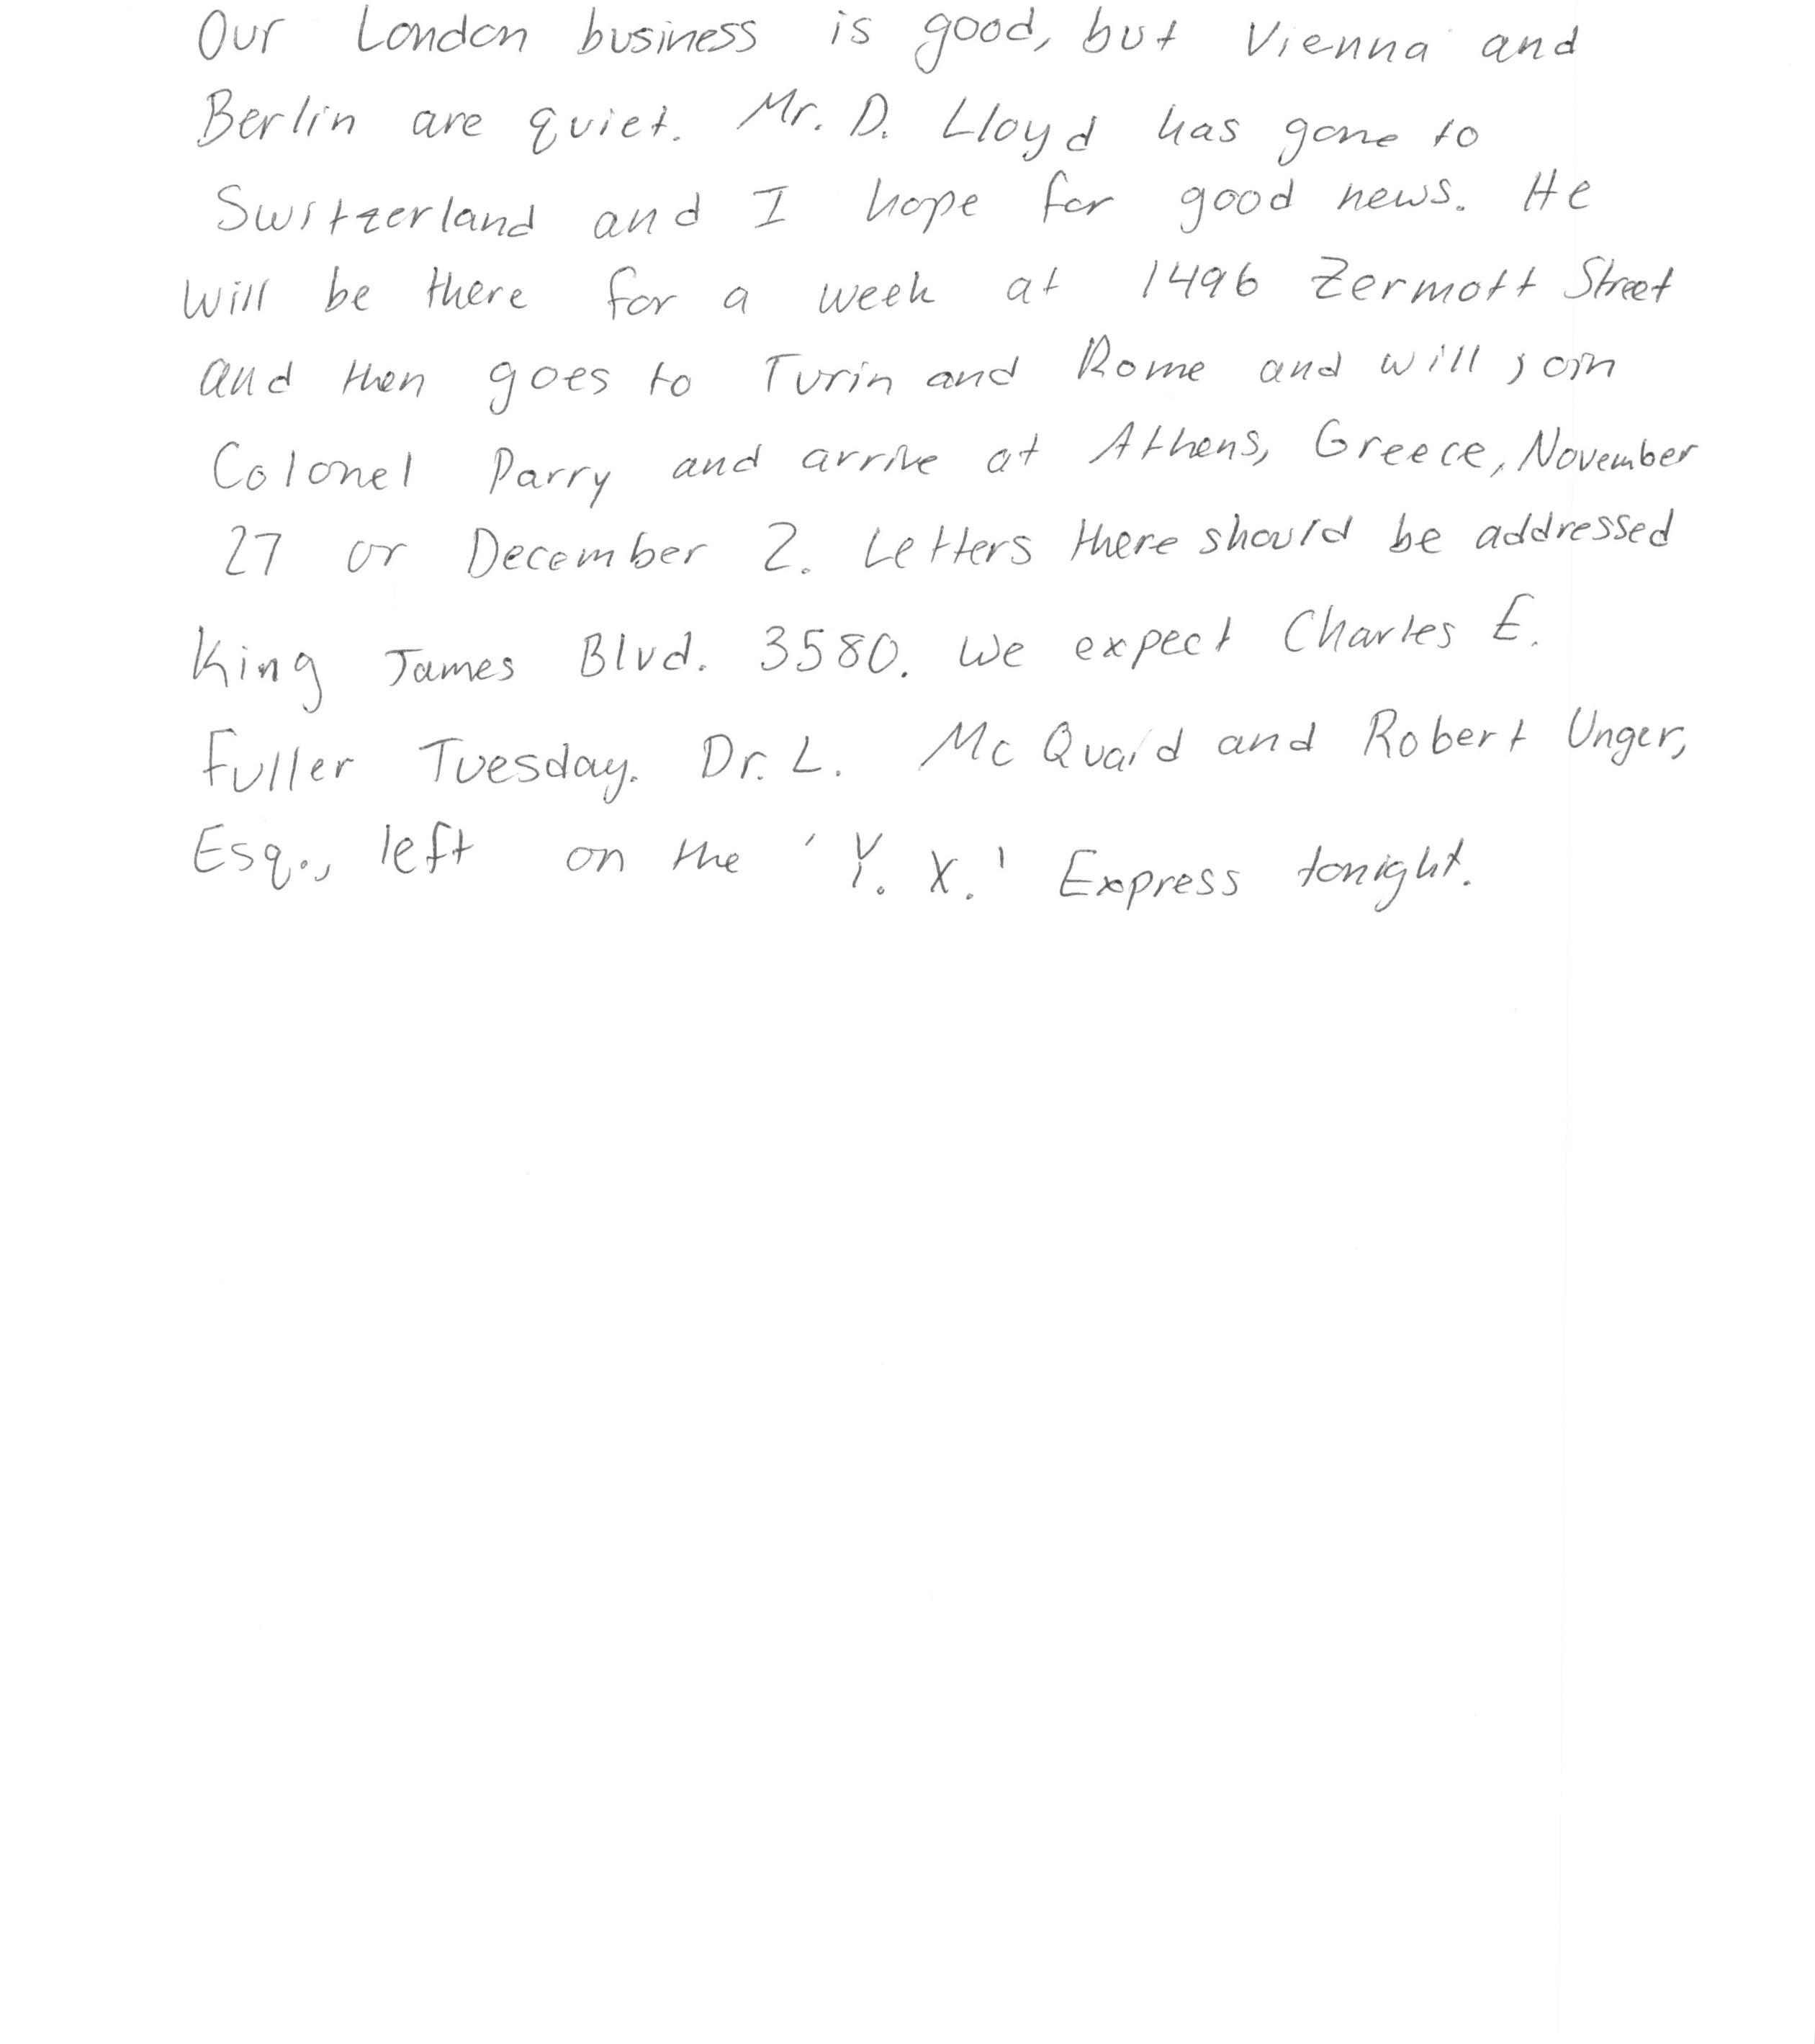 Our London business is good, but Vienna and
Berlin are quiet. Mr. D. Lloyd has gone to
Switzerland and I hope for good news. He
will be there for a week at 1496 Zermott Street
and then goes to Turin and Rome and will join
Colonel Parry and arrive at Athens, Greece, November
27 or December 2. Letters there should be addressed
King James Blvd. 3580. We expect Charles E.
Fuller Tuesday. Dr. L. McQuaid and Robert Unger,
Esq., left on the 'Y. X.' Express tonight.